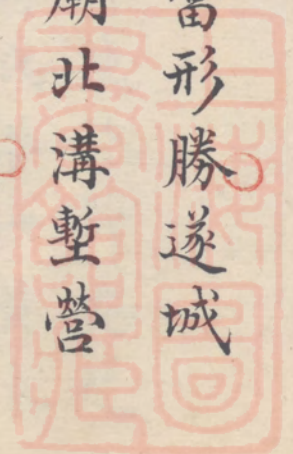 當形勝遂城
廟北溝塹營